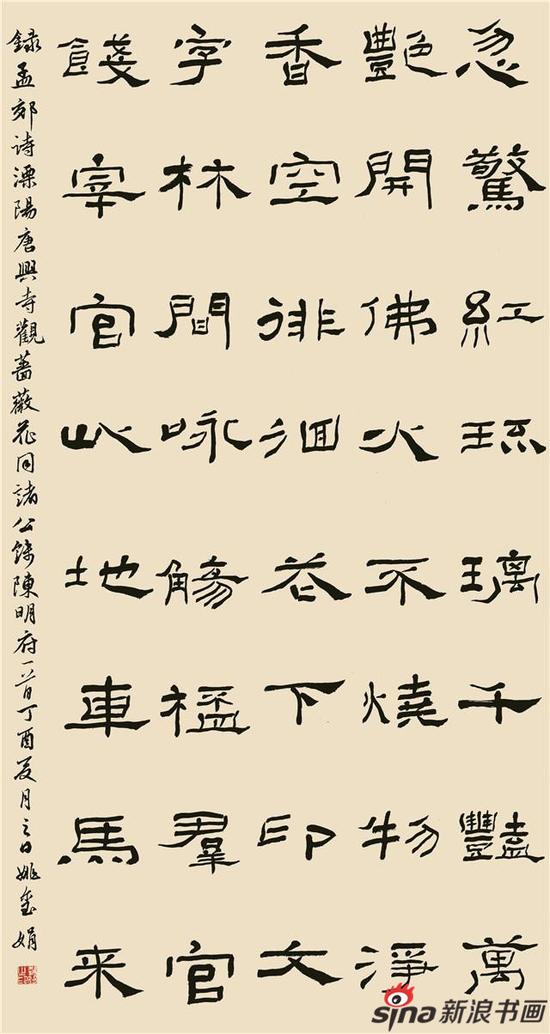 忽驚紅琉璃千豔萬
艷開佛火不燒物淨
香空徘徊花下印文
字林間咏觴羣官
餞宰官此地車馬来
録孟郊诗溧陽唐興寺觀薔薇花同諸公餞陳明府一首丁酉夏月之日姚玺娟
sina新浪书画